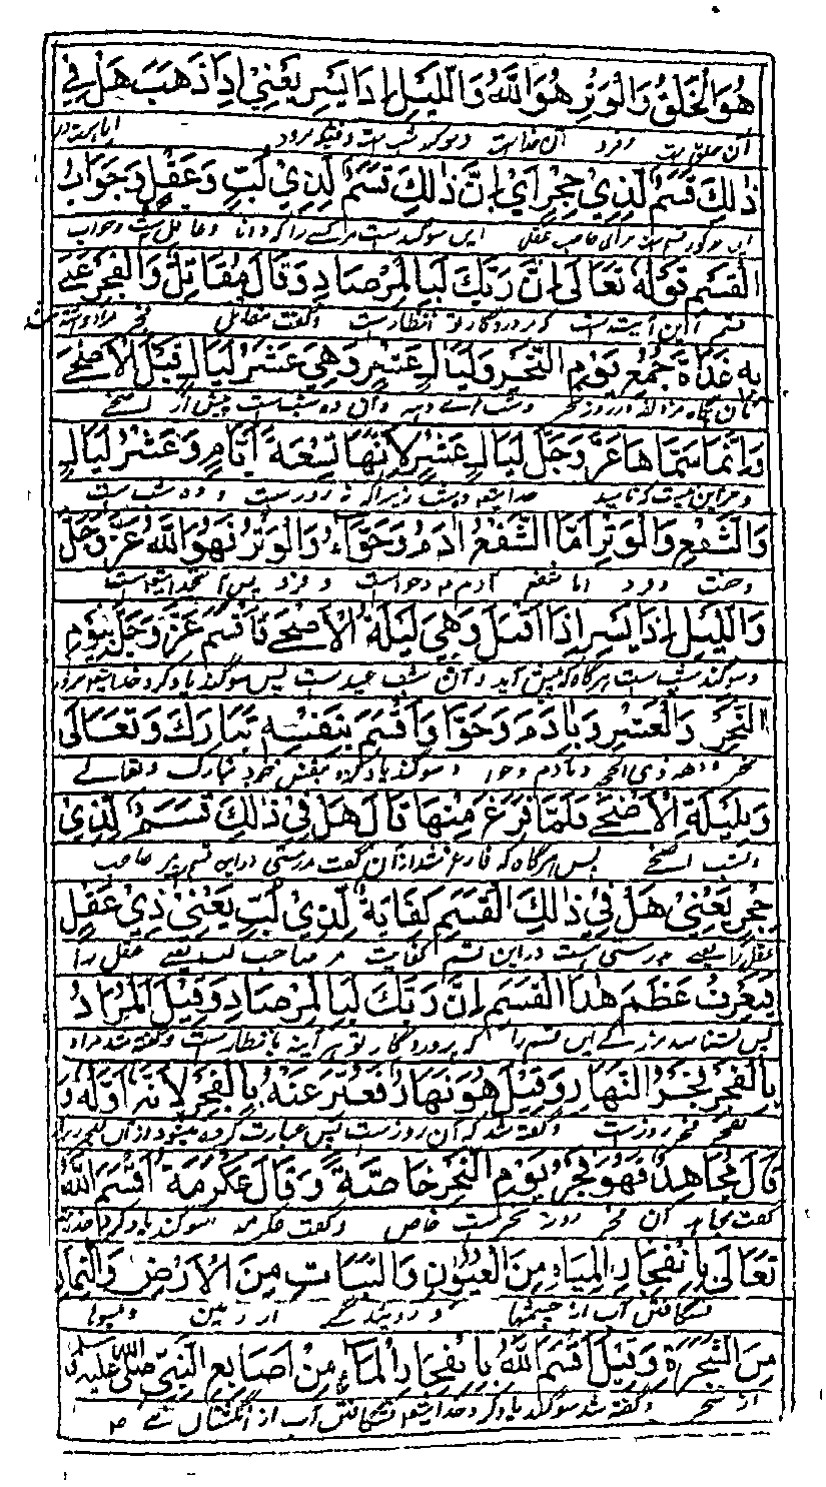 هُوَ الْخَلْقُ وَالْوَتْرُ هُوَ اللّٰهُ وَاللَّيْلِ اِذَا يَسْرِ يَعْنِيْ اِذَا ذَهَبَ هَلْ فِيْ
آن خلق است و فرد آن خداست وسوگند شب است وقتیکه میرود آیا هست در
ذٰلِكَ قَسَمٌ لِّذِيْ حِجْرٍ اَيْ اِنَّ ذٰلِكَ قَسَمٌ لِذِيْ لُبٍّ وَعَقْلٍ وَجَوَابُ
این سوگند ست مر کسے را که دانا وعاقل ست وجواب
الْقَسَمِ قَوْلُهٗ تَعَالٰى اِنَّ رَبَّكَ لَبِالْمِرْصَادِ وَقَالَ مُقَاتِلٌ وَالْفَجْرِ عَنٰى
قسم این آیت ست که پروردگار تو بانتظار ست وگفت مقاتل فجر
بِهٖ غَدَاةَ جُمَعٍ يَوْمَ النَّحْرِ وَلَيَالٍ عَشْرٍ وَهِيَ عَشْرُ لَيَالٍ قَبْلَ الْاَضْحٰى
وآن ده شب ست پیش از اضحے
وَاِنَّمَا سَمَّاهَا عَزَّ وَجَلَّ لَيَالٍ عَشْرٍ لِاَنَّهَا تِسْعَةُ اَيَّامٍ وَعَشْرُ لَيَالٍ
زیراکه نه روز ست و ده شب ست
وَالشَّفْعِ وَالْوَتْرِ اَمَّا الشَّفْعُ اٰدَمُ وَحَوَّاءُ وَالْوَتْرُ فَهُوَ اللّٰهُ عَزَّ وَجَلَّ
وجفت وفرد اما شفع آدم و حواست و فرد پس آن خدایتعالی است
وَاللَّيْلِ اِذَا يَسْرِ اِذَا اَقْبَلَ وَهِيَ لَيْلَةُ الْاَضْحٰى فَاَقْسَمَ عَزَّ وَجَلَّ بِيَوْمِ
وسوگند شب ست هرگاه که پیش آید و آن شب عید ست پس سوگند یاد کرد خدایتعالی بروز
النَّحْرِ وَالْعَشْرِ وَبِاٰدَمَ وَحَوَّا وَاَقْسَمَ بِنَفْسِهٖ تَبَارَكَ وَتَعَالٰى
نحر و دهه ذی الحجه وبآدم وحوا وسوگند یاد کرده بنفس خود تبارک وتعالے
وَبِلَيْلَةِ الْاَضْحٰى فَلَمَّا فَرَغَ مِنْهَا قَالَ هَلْ فِيْ ذٰلِكَ قَسَمٌ لِّذِيْ
وبشب اضحے پس هرگاه که فارغ شد ازآن گفت درین قسم صاحب
حِجْرٍ يَعْنِيْ هَلْ فِيْ ذٰلِكَ الْقَسَمِ كِفَايَةٌ لِّذِيْ لُبٍّ يَعْنِيْ ذِيْ عَقْلٍ
عقل را یعنے درین قسم کفایت مر صاحب لب یعنے عقل را
فَيَعْرِفُ عَظَمَ هٰذَا الْقَسَمِ اِنَّ رَبَّكَ لَبِالْمِرْصَادِ وَقِيْلَ الْمُرَادُ
پس بشناسد این قسم را که پروردگار تو هر آینه بانتظار ست وگفته شد مراد
بِالْفَجْرِ فَجْرُ النَّهَارِ وَقِيْلَ هُوَ نَهَارٌ فَعَبَّرَ عَنْهُ بِالْفَجْرِ لِاَنَّهٗ اَوَّلُهٗ وَ
بفجر فجر روز ست وگفته شد که آن روز ست پس عبارت کرده میشود ازآن بفجر
قَالَ مُجَاهِدٌ فَهُوَ فَجْرُ يَوْمِ النَّحْرِ خَاصَّةً وَقَالَ عِكْرِمَةُ اَقْسَمَ اللّٰهُ
گفت مجاهد آن فجر روز نحر ست خاص وگفت عکرمه سوگند یاد کرد
تَعَالٰى بِانْفِجَارِ الْمِيَاهِ مِنَ الْعُيُوْنِ وَالنَّبَاتِ مِنَ الْاَرْضِ وَالثِّمَارِ
بشگافتن آب از چشمها و روئیدگی از زمین ومیوها
مِنَ الشَّجَرَةِ وَقِيْلَ اَقْسَمَ اللّٰهُ بِانْفِجَارِ الْمَاءِ مِنْ اَصَابِعِ النَّبِيِّ صَلَّى اللّٰهُ عَلَيْهِ وَسَلَّمَ
از شجر وگفته شد سوگند یاد کرد خدایتعالی بشگافتن آب از انگشتان نبی ص